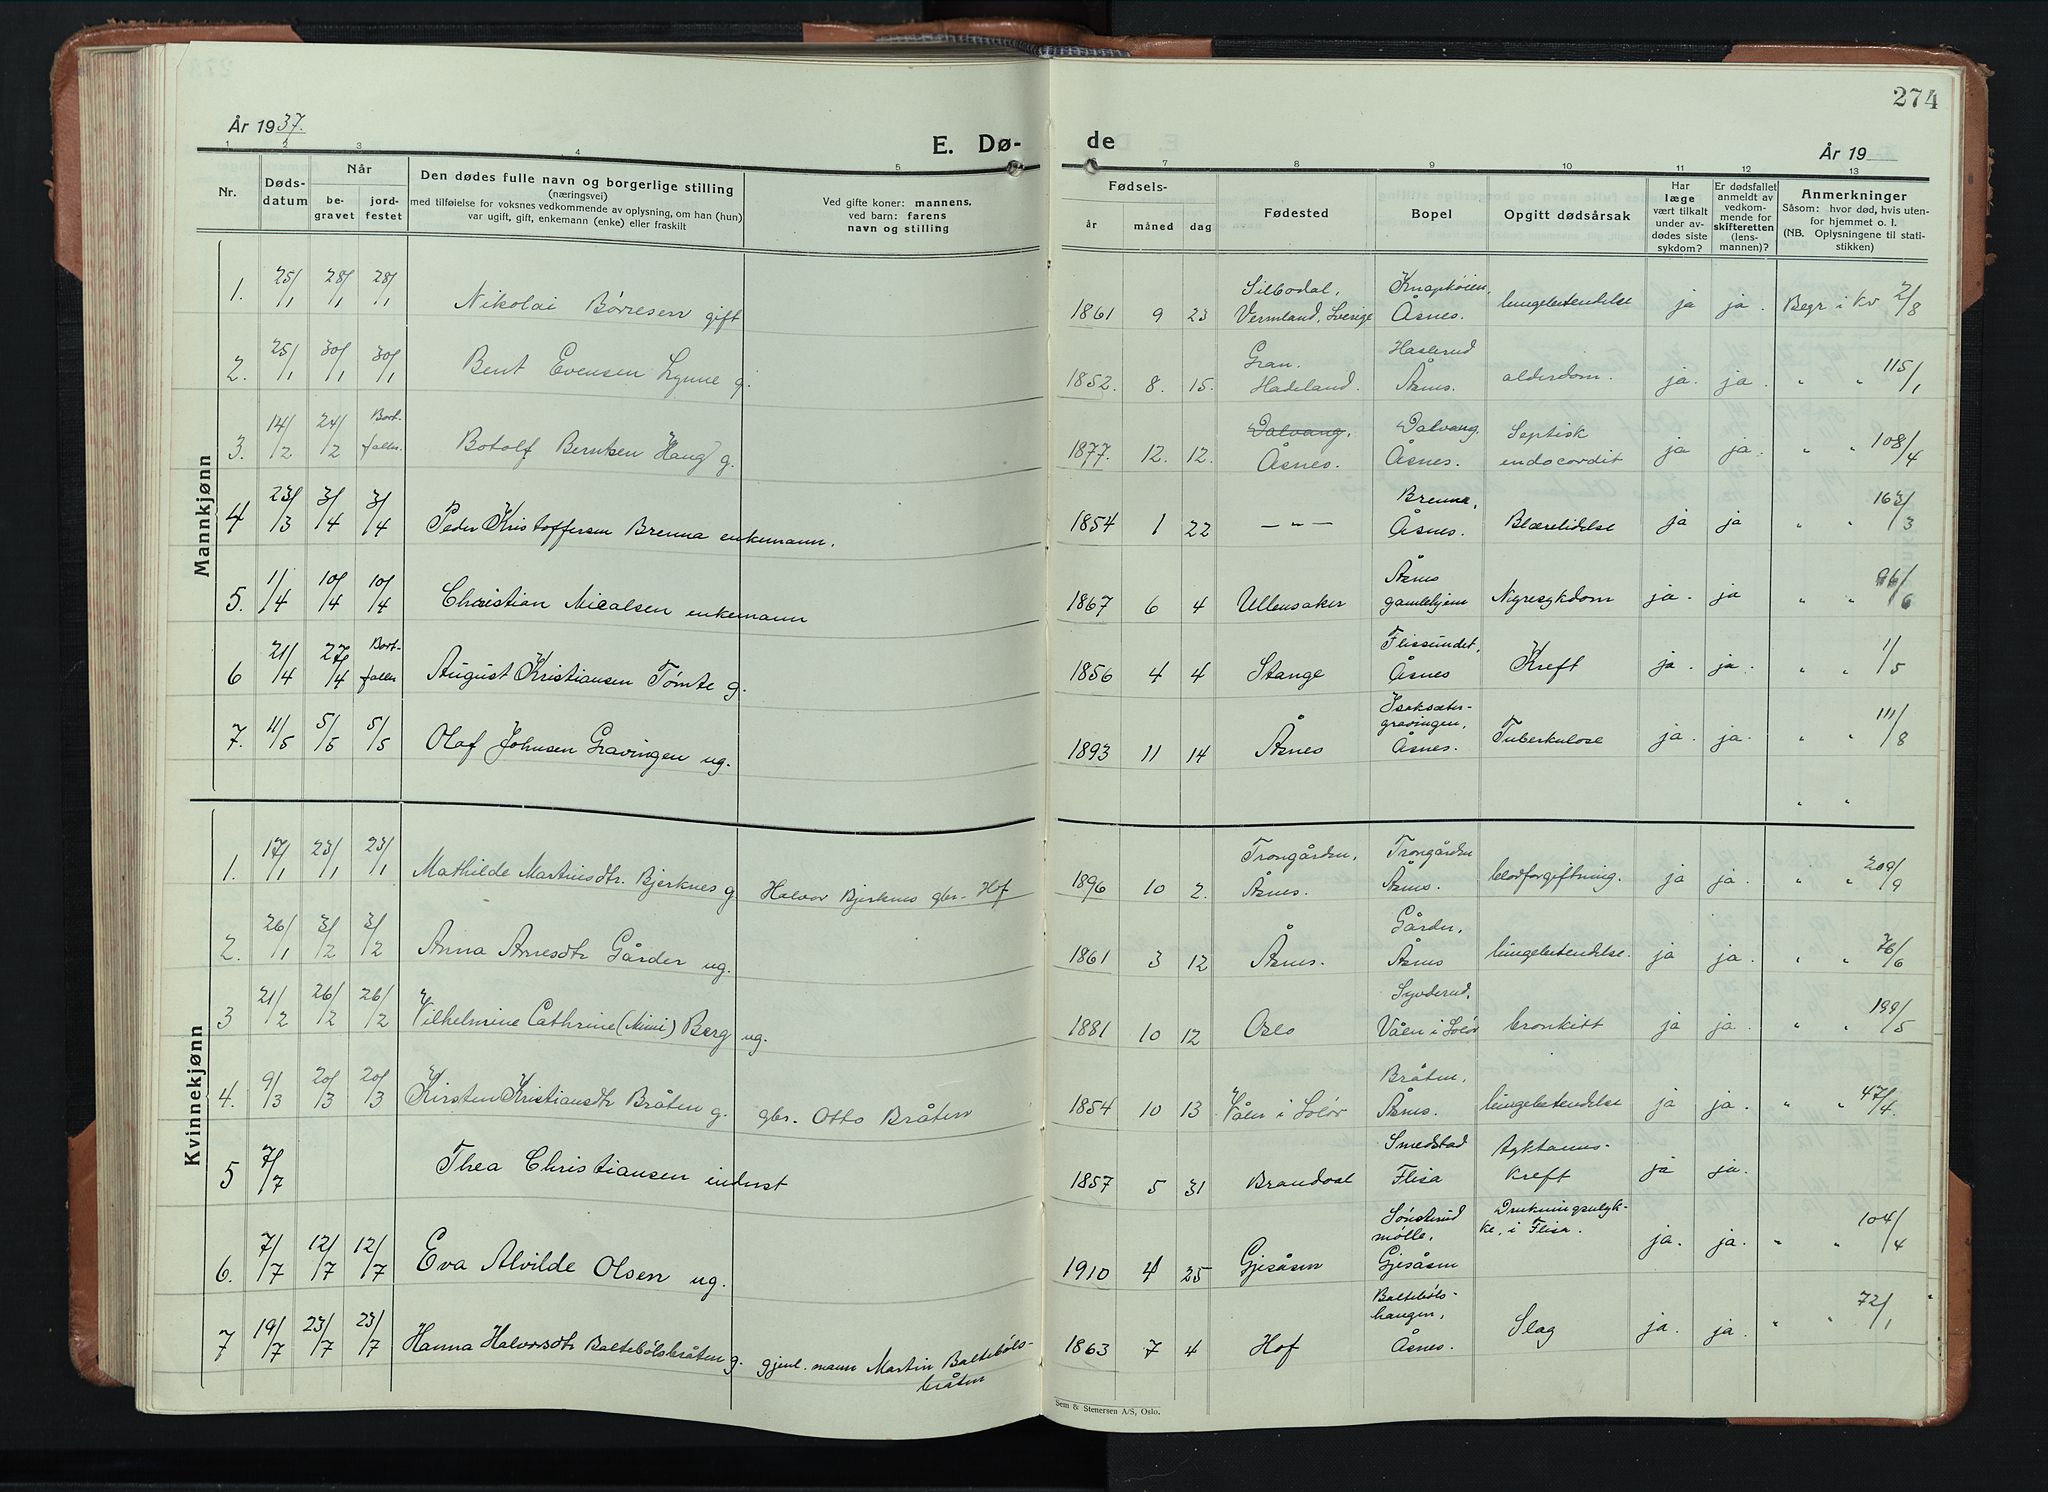 274
År 1937.
E. Dø-
de
År 19
1 2 3 4 5 7 8 9 10 11 12 13
Nr.
Døds-
datum
Når
be-
gravet
jord-
festet
Den dødes fulle navn og borgerlige stilling
(næringsvei)
med tilføielse for voksnes vedkommende av oplysning, om han (hun)
var ugift, gift, enkemann (enke) eller fraskilt
Ved gifte koner: mannens,
ved barn: farens
navn og stilling
Fødsels-
år måned dag
Fødested
Bopel
Opgitt dødsårsak
Har
læge
vært tilkalt
under av-
dødes siste
sykdom?
Er dødsfallet
anmeldt av
vedkom-
mende for
skifteretten
(lens-
mannen)?
Anmerkninger
Såsom: hvor død, hvis uten-
for hjemmet o. l.
(NB. Oplysningene til stati-
stikken)
Mannkjønn
1. 25/1 28/1 28/1 Nikolai Børresen gift 1861 9 23 Silbodal, Vermland, Sverige Knapkøien, Åsnes. lungebetendelse ja ja. Begr i Kv 2/8
2. 25/1 30/1 30/1 Bent Evensen Lynne g. 1852. 8. 15. Gran. Hadeland. Haslerud Åsnes. alderdom. ja. ja. " " 115/1
3. 14/2 24/2 Bort-faller Botolf Berntsen Haug g. 1877. 12. 12. Dalvang, Åsnes. Dalvang. Åsnes. Septisk endocardit ja ja. " " 108/4
4 23/3 3/4 3/4 Peder Kristoffersen Brenna enkemann. 1854 1 22 — " — Brenna, Åsnes. Blærelidelse ja ja " " 163/3
5. 1/4 10/4 10/4 Christian Nicalsen enkemann 1867 6 4 Ullensaker Åsnes gamlehjem Nyresykdom ja. ja " " 96/6
6 21/4 27/4 Bort-faller August Kristiansen Tømte g. 1856 4 4 Stange Flissundet, Åsnes Kreft ja. ja. " " 1/5
7. 11/5 5/5 5/5 Olaf Johnsen Gravingen ug. 1893 11 14 Åsnes Isaksæter-gravingen, Åsnes. Tuberkulose ja. ja. " " 111/8
" "
Kvinnekjønn
1. 17/1 23/1 23/1 Mathilde Martinsdtr. Bjerknes g. Halvor Bjerknes gbr. Hof 1896 10 2. Trongården, Åsnes. Trongården Åsnes. blodforgiftning. ja ja. " " 209/9
2. 26/1 3/2 3/2 Anna Arnesdtr Gårder ug. 1861 3 12 Åsnes. Gårder, Åsnes lungebetendelse. ja ja. " " 76/6
3 21/2 26/2 26/2 Vilhelmine Cathrine (Mimi) Berg ug. 1881 10 12 Oslo Syvderud, Våler i Solør bronkitt ja ja " " 199/5
4. 9/3 20/3 20/3 Kirsten Kristiansdtr Bråten g. gbr. Otto Bråten 1854 10 13 Våler i Solør Bråten, Åsnes. lungebetendelse ja ja. " " 47/4.
5 7/7 Thea Christiansen inderst 1857 5 31 Brandval Smedstad Flisa kreft ja ja.
6. 7/7 12/7 12/7 Eva Alvilde Olsen ug. 1910 4 25 Gjesåsen Sønsterud mølle, Gjesåsen Drukningsulyk-ke, i Flisa. ja. ja. " " 104/4
7 19/7 23/7 23/7 Hanna Halvorsdtr Baltebølsbråten g. gjenl. mann Martin Baltebøls-bråten 1863 7 4 Hof Baltebøls-haugen, Åsnes. Slag ja. ja. " " 72/1
Sem & Stenersen A/S, Oslo.